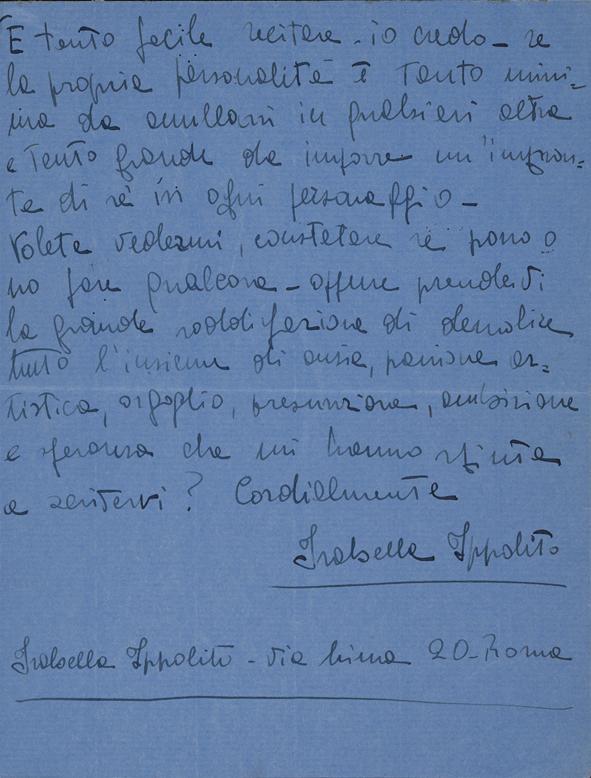 E tanto facile recitare - io credo - se
la propria personalità è tanto mini=
ma da annullarsi in qualsiasi altra
e tanto grande da imporre un'impron=
ta di sè in ogni personaggio -
Volete vedermi, constatare se posso o
no fare qualcosa - oppure prendervi
la grande soddisfazione di demolire
tutto l'insieme di ansia, passione ar=
tistica, orgoglio, presunzione, ambizione
e speranza che mi hanno spinta
a scrivervi? Cordialmente
Isabella Ippolito
Isabella Ippolito - via 20 - Roma